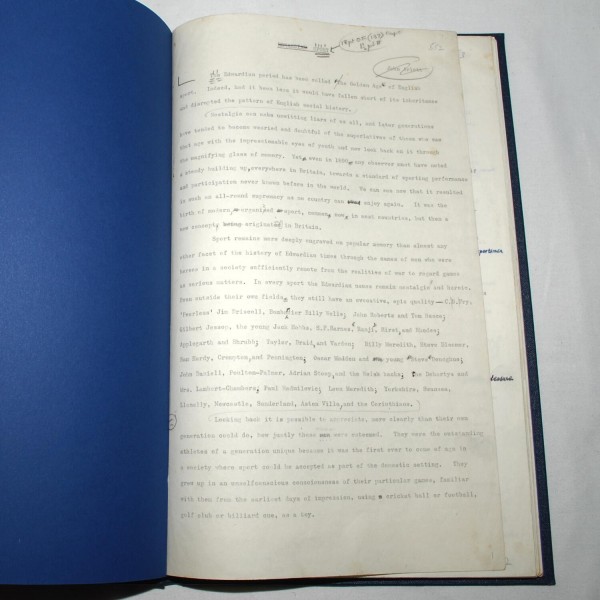 The Edwardian period has been called the Golden Age of English
sport. Indeed, had it been less it would have fallen short of its inheritance
and disrupted the pattern of English social history.
Nostalgia can make unwitting liars of us all, and later generations
have tended to become worried and doubtful of the superlatives of those who saw
that age with the impressionable eyes of youth and now look back on it through
the magnifying glass of memory. Yet, even in 1900, any observer must have noted
a steady building up, everywhere in Britain, towards a standard of sporting performance
and participation never known before in the world. We can see now that it resulted
in such an all-round supremacy as no country can enjoy again. It was the
birth of modern, organised sport, common, now, in most countries, but then a
new concept, originated in Britain.
Sport remains more deeply engraved on popular memory than almost any
other facet of the history of Edwardian times through the names of men who were
heroes in a society sufficiently remote from the realities of war to regard games
as serious matters. In every sport the Edwardian names remain nostalgic and heroic.
Even outside their own fields, they still have an evocative, epic quality - C.B. Fry,
'Peerless' Jim Driscoll, Bombardier Billy Wells; John Roberts and Tom Reece;
Gilbert Jessop, the young Jack Hobbs, S.F. Barnes, Hirst, and Rhodes;
Applegarth and Shrubb; Taylor, Braid, and Vardon; Billy Meredith, Steve Bloomer,
Sam Hardy, Crompton, and Pennington; Danny Maher and young Steve Donoghue;
John Daniell, Poulton-Palmer, Adrian Stoop, and the Welsh backs; the Dohertys and
Mrs. Lambert-Chambers; Leon Meredith; Yorkshire, Swansea,
Llanelly, Newcastle, Sunderland, Aston Villa, and the Corinthians.
Looking back it is possible to appreciate, more clearly than their own
generation could do, how justly these men were esteemed. They were the outstanding
athletes of a generation unique because it was the first ever to come of age in
a society where sport could be accepted as part of the domestic setting. They
grew up in an unselfconscious consciousness of their particular games, familiar
with them from the earliest days of impression, using a cricket ball or football,
golf club or billiard cue, as a toy.